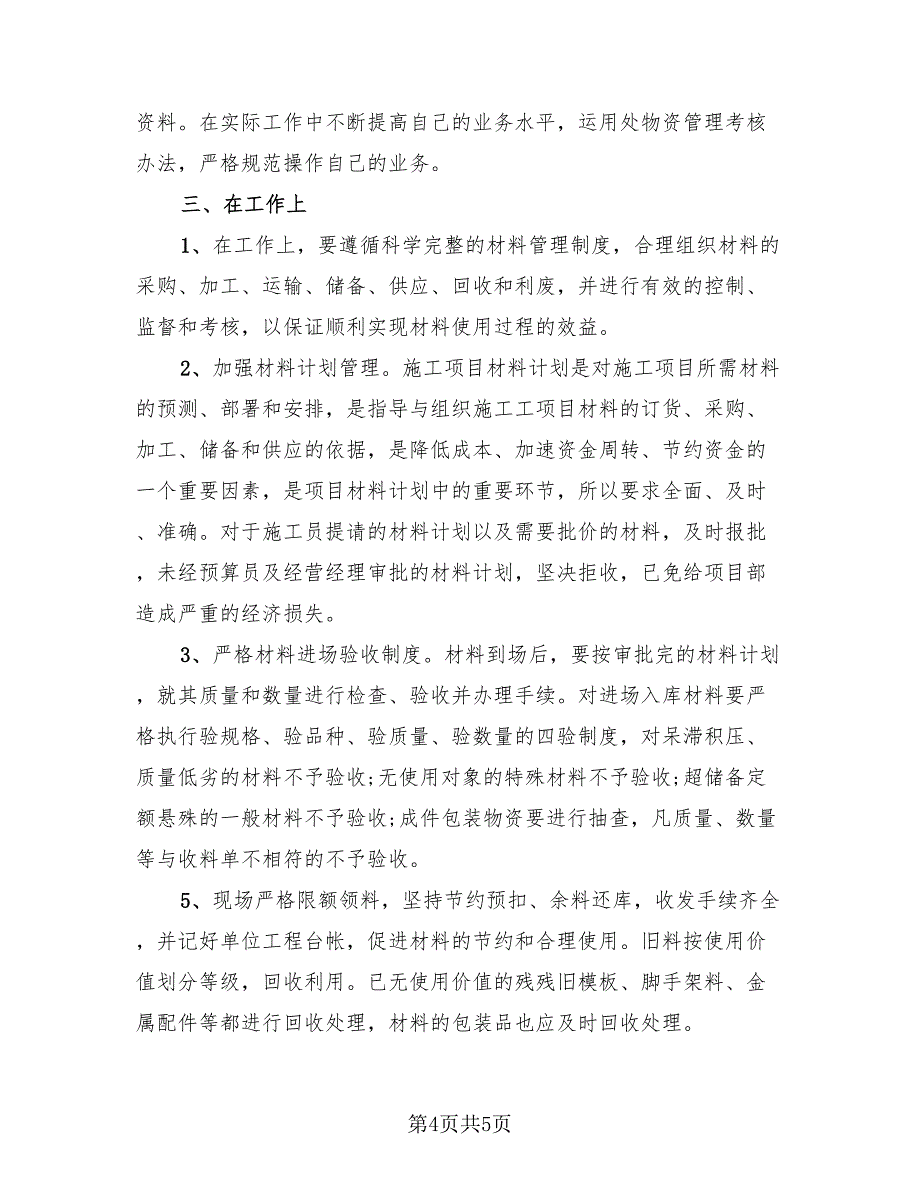 资料。在实际工作中不断提高自己的业务水平，运用处物资管理考核
办法，严格规范操作自己的业务。
三、在工作上
1、在工作上，要遵循科学完整的材料管理制度，合理组织材料的
采购、加工、运输、储备、供应、回收和利废，并进行有效的控制、
监督和考核，以保证顺利实现材料使用过程的效益。
2、加强材料计划管理。施工项目材料计划是对施工项目所需材料
的预测、部署和安排，是指导与组织施工工项目材料的订货、采购、
加工、储备和供应的依据，是降低成本、加速资金周转、节约资金的
一个重要因素，是项目材料计划中的重要环节，所以要求全面、及时
、准确。对于施工员提请的材料计划以及需要批价的材料，及时报批
，未经预算员及经营经理审批的材料计划，坚决拒收，已免给项目部
造成严重的经济损失。
3、严格材料进场验收制度。材料到场后，要按审批完的材料计划
，就其质量和数量进行检查、验收并办理手续。对进场入库材料要严
格执行验规格、验品种、验质量、验数量的四验制度，对呆滞积压、
质量低劣的材料不予验收;无使用对象的特殊材料不予验收;超储备定
额悬殊的一般材料不予验收;成件包装物资要进行抽查，凡质量、数量
等与收料单不相符的不予验收。
5、现场严格限额领料，坚持节约预扣、余料还库，收发手续齐全
，并记好单位工程台帐，促进材料的节约和合理使用。旧料按使用价
值划分等级，回收利用。已无使用价值的残残旧模板、脚手架料、金
属配件等都进行回收处理，材料的包装品也应及时回收处理。
第4页共5页